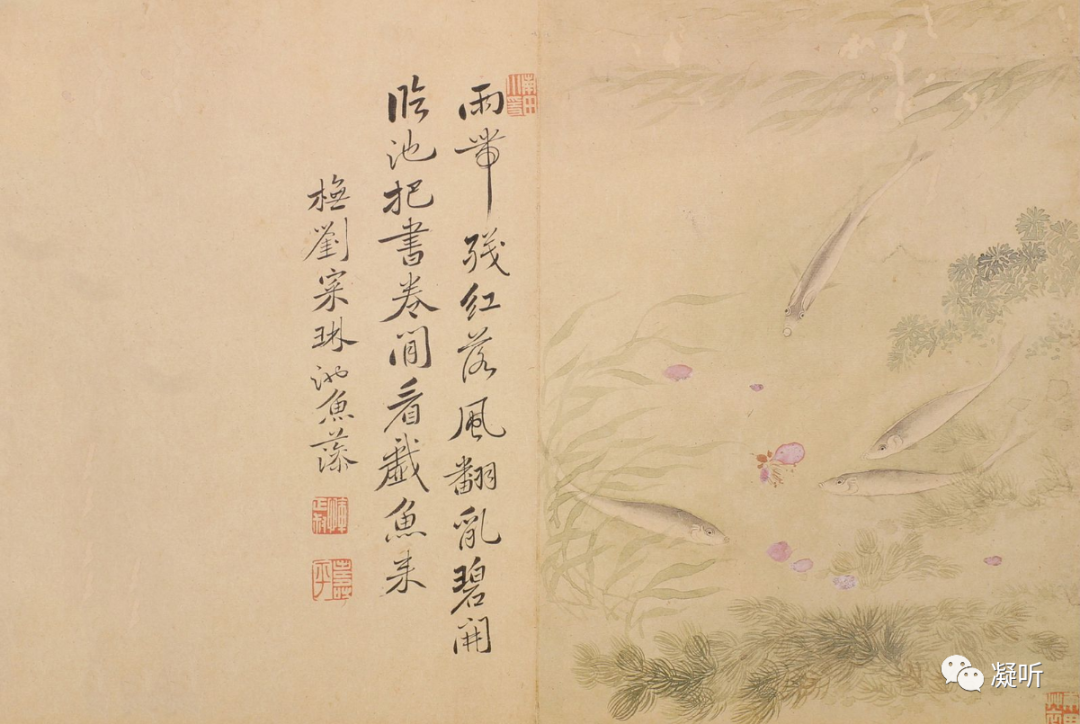 雨帶殘紅落風翻亂碧開
臨池把書卷閒看戲魚来
橅劉寀琳池魚藻
惲正叔
壽平
凝听